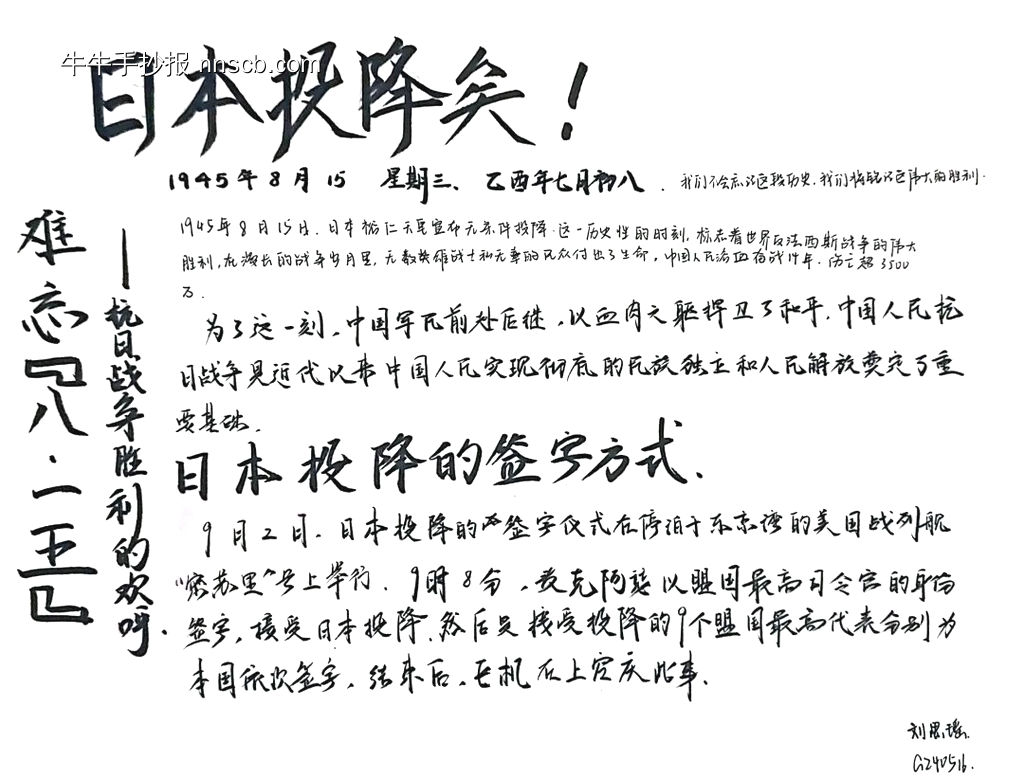 牛牛手抄报 nhscb.com
日本投降矣！
1945年8月15 星期三、乙酉年七月初八．我们不会忘记这段历史，我们将铭记这伟大的胜利．
难忘『八·一五』
——抗日战争胜利的欢呼．
1945年8月15日，日本裕仁天皇宣布无条件投降．这一历史性的时刻，标志着世界反法西斯战争的伟大
胜利，在漫长的战争岁月里，无数英雄战士和无辜的民众付出了生命，中国人民浴血奋战14年．伤亡超3500
万．
为了这一刻，中国军民前赴后继，以血肉之躯捍卫了和平，中国人民抗
日战争是近代以来中国人民实现彻底的民族独立和人民解放奠定了重
要基础．
日本投降的签字方式．
9月2日，日本投降的签字仪式在停泊于东京湾的美国战列舰
“密苏里”号上举行．9时8分，麦克阿瑟以盟国最高司令官的身份
签字，接受日本投降．然后是接受投降的9个盟国最高代表分别为
本国依次签字．结束后，在机 上空庆此事．
刘思瑶．
G240516．